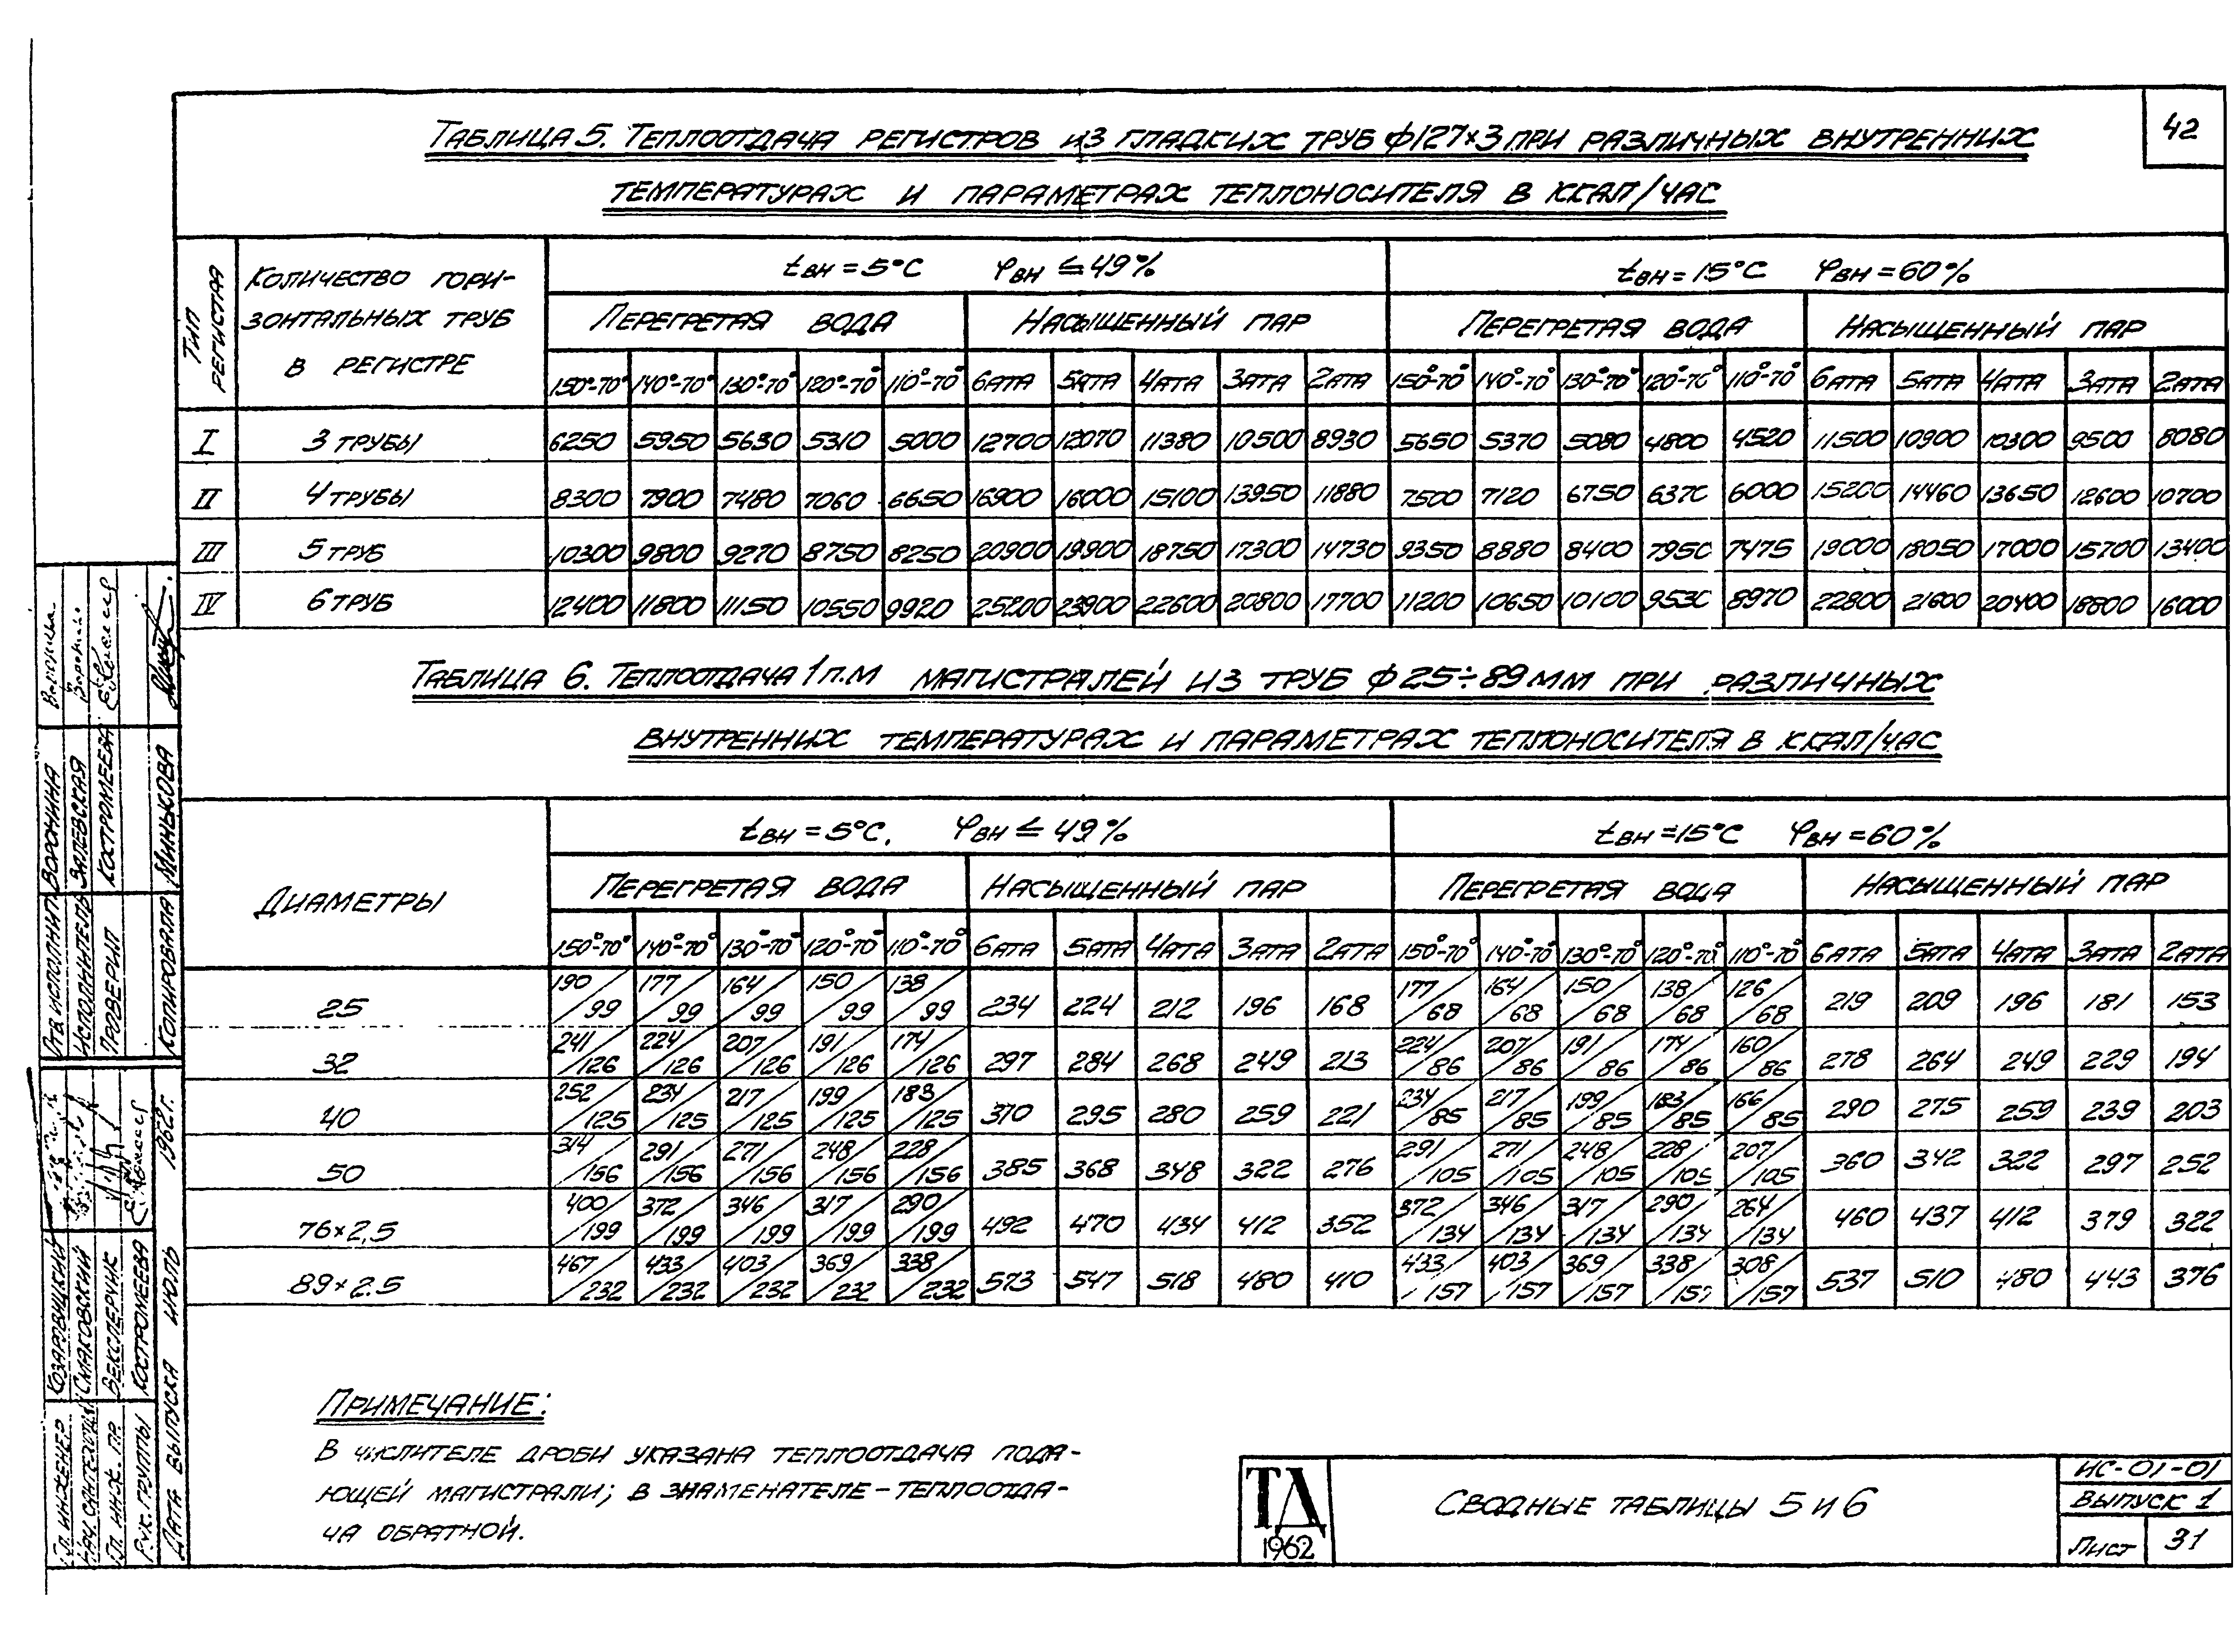 42
Таблица 5. Теплоотдача регистров из гладких труб ф127×3 при различных внутренних
температурах и параметрах теплоносителя в ккал/час
Тип регистра
Количество гори-
зонтальных труб
в регистре
tвн = 5°С φвн ≤ 49%
tвн = 15°С φвн = 60%
Перегретая вода Насыщенный пар Перегретая вода Насыщенный пар
150°-70° 140°-70° 130°-70° 120°-70° 110°-70° 6ата 5ата 4ата 3ата 2ата 150°-70° 140°-70° 130°-70° 120°-70° 110°-70° 6ата 5ата 4ата 3ата 2ата
I 3 трубы 6250 5950 5630 5310 5000 12700 12070 11380 10500 8930 5650 5370 5080 4800 4520 11500 10900 10300 9500 8080
II 4 трубы 8300 7900 7480 7060 6650 16900 16000 15100 13950 11880 7500 7120 6750 6370 6000 15200 14460 13650 12600 10700
III 5 труб 10300 9800 9270 8750 8250 20900 19900 18750 17300 14730 9350 8880 8400 7950 7475 19000 18050 17000 15700 13400
IV 6 труб 12400 11800 11150 10550 9920 25200 23900 22600 20800 17700 11200 10650 10100 9530 8970 22800 21600 20400 18800 16000
Таблица 6. Теплоотдача 1 п.м магистралей из труб ф 25÷89 мм при различных
внутренних температурах и параметрах теплоносителя в ккал/час
Диаметры
tвн = 5°С. φвн ≤ 49%
tвн = 15°С φвн = 60%
Перегретая вода Насыщенный пар Перегретая вода Насыщенный пар
150°-70° 140°-70° 130°-70° 120°-70° 110°-70° 6ата 5ата 4ата 3ата 2ата 150°-70° 140°-70° 130°-70° 120°-70° 110°-70° 6ата 5ата 4ата 3ата 2ата
25 190/99 177/99 164/99 150/99 138/99 234 224 212 196 168 177/68 164/68 150/68 138/68 126/68 219 209 196 181 153
32 241/126 224/126 207/126 191/126 174/126 297 284 268 249 213 224/86 207/86 191/86 174/86 160/86 278 264 249 229 194
40 252/125 234/125 217/125 199/125 183/125 370 295 280 259 221 234/85 217/85 199/85 183/85 166/85 290 275 259 239 203
50 314/156 291/156 271/156 248/156 228/156 385 368 348 322 276 291/105 271/105 248/105 228/105 207/105 360 342 322 297 252
76×2,5 400/199 372/199 346/199 317/199 290/199 492 470 434 412 352 372/134 346/134 317/134 290/134 264/134 460 437 412 379 322
89×2.5 467/232 433/232 403/232 369/232 338/232 573 547 518 480 410 433/157 403/157 369/157 338/157 308/157 537 510 480 443 376
Примечание:
В числителе дроби указана теплоотдача пода-
ющей магистрали; в знаменателе – теплоотда-
ча обратной.
ТД
1962
Сводные таблицы 5 и 6
ИС-01-01
Выпуск 1
Лист 31
Отв исполнит Воронина
Исполнитель Валевская
Проверил Костромеева
Копировала Минькова
Гл. инженер
Нач. сантехотд Смаковский
Гл. инж. пр. Векслерчик
Рук. группы Костромеева
Дата выпуска июль 1962г.